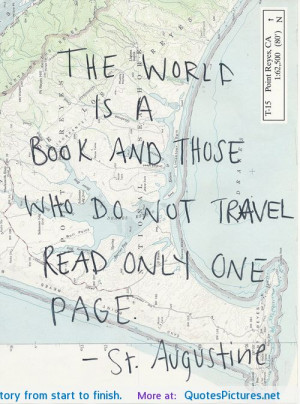 T-15 Point Reyes, CA
1:62,500 (80') N
THE WORLD
IS A
BOOK AND THOSE
WHO DO NOT TRAVEL
READ ONLY ONE
PAGE.
- St. Augustine
tory from start to finish. More at: QuotesPictures.net